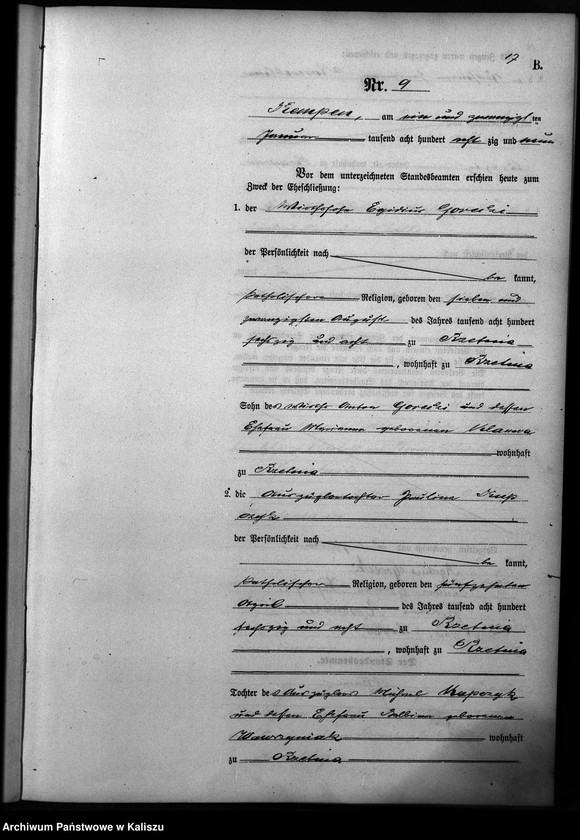 17
B.
Nr. 9
Kempen, am vier und zwanzigsten
Januar tausend acht hundert acht zig und neun
Vor dem unterzeichneten Standesbeamten erschien heute zum
Zweck der Eheschließung:
1. der Wirthssohn Egidius Gorecki
der Persönlichkeit nach
be kannt,
katholischer Religion, geboren den sieben und
zwanzigsten August des Jahres tausend acht hundert
sechzig und acht zu Krzetnia
, wohnhaft zu Krzetnia
Sohn des Wirths Anton Gorecki und dessen
Ehefrau Marianna geborenen
wohnhaft
zu Krzetnia
2. die Auszüglertochter Paulina Kup
czyk
der Persönlichkeit nach
be kannt,
katholischer Religion, geboren den fünfzehnten
April des Jahres tausend acht hundert
sechzig und acht zu Krzetnia
, wohnhaft zu Krzetnia
Tochter des Auszüglers Michael Kupczyk
und dessen Ehefrau Balbina geborenen
Wawrzyniak wohnhaft
zu Krzetnia
Archiwum Państwowe w Kaliszu